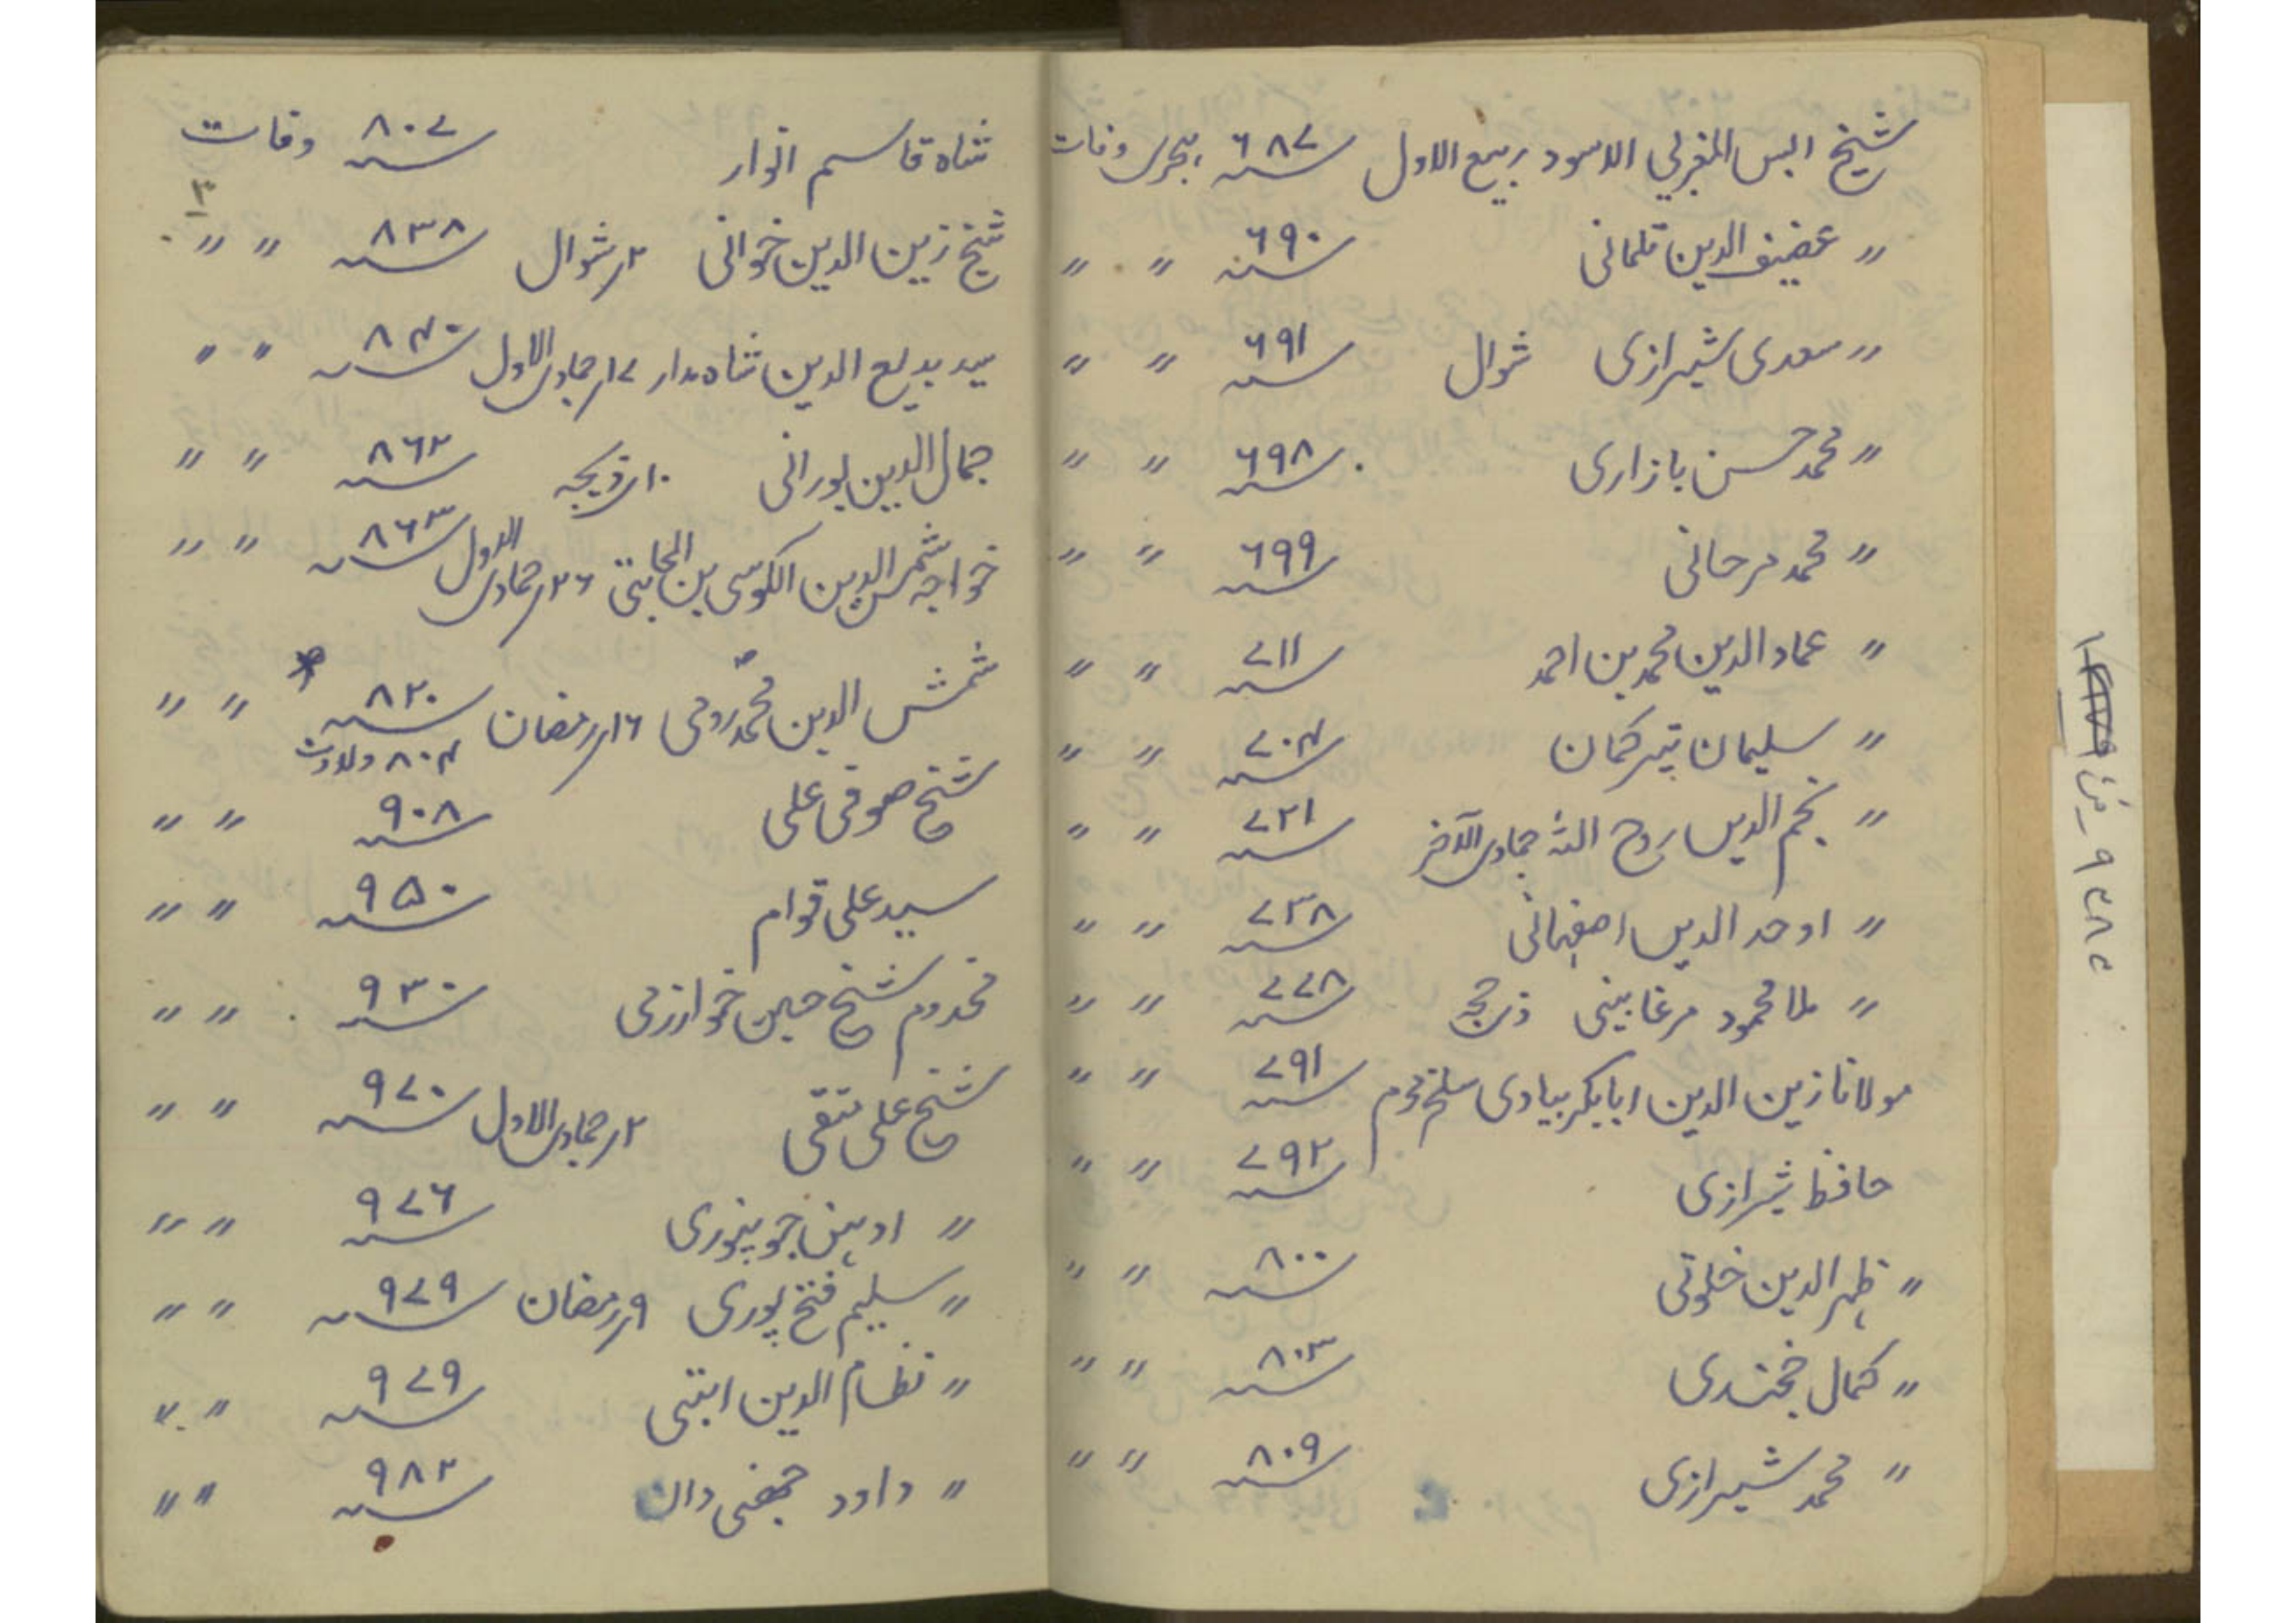 شیخ البس المغربی الاسود ربیع الاول ۶۸۷؁ ہجری وفات
〃 عفیف الدین تلمانی ۶۹۰؁ 〃 〃
〃 سعدی شیرازی شوال ۶۹۱؁ 〃 〃
〃 محمد حسن بازاری ۶۹۸؁ 〃 〃
〃 محمد مرحانی ۶۹۹؁ 〃 〃
〃 عماد الدین محمد بن احمد ۷۱۱؁ 〃 〃
〃 سلیمان تیرکمان ۷۰۴؁ 〃 〃
〃 نجم الدین روح اللہ جمادی الآخر ۷۲۱؁ 〃 〃
〃 اوحد الدین اصفہانی ۷۳۸؁ 〃 〃
〃 ملا محمود مرغابینی ذی حجہ ۷۷۸؁ 〃 〃
مولانا زین الدین ابابکر بیادی سلخ محرم ۷۹۱؁ 〃 〃
حافظ شیرازی ۷۹۲؁ 〃 〃
〃 ظہر الدین خلوتی ۸۰۰؁ 〃 〃
〃 کمال خجندی ۸۰۳؁ 〃 〃
〃 محمد شیرازی ۸۰۹؁ 〃 〃
شاہ قاسم انوار ۸۰۷؁ وفات
شیخ زین الدین خوانی ۲؍ شوال ۸۳۸؁ 〃 〃
سید بدیع الدین شاہ مدار ۱۷؍ جمادی الاول ۸۴۰؁ 〃 〃
جمال الدین لورانی ۱۰؍ ذیحجہ ۸۶۲؁ 〃 〃
خواجہ شمس الدین الکوسی بن الجابتی ۲۶؍ جمادی الاول ۸۶۳؁ 〃 〃
شمس الدین محمد رومی ۱۶؍ رمضان ۸۲۰؁ 〃 〃
۸۰۴ ولادت
شیخ صوفی علی ۹۰۸؁ 〃 〃
سید علی قوام ۹۵۰؁ 〃 〃
مخدوم شیخ حسین خوارزمی ۹۳۰؁ 〃 〃
شیخ علی متقی ۲؍ جمادی الاول ۹۷۰؁ 〃 〃
〃 ادہن جونپوری ۹۷۶؁ 〃 〃
〃 سلیم فتح پوری ۹؍ رمضان ۹۷۹؁ 〃 〃
〃 نظام الدین ابتنی ۹۷۹؁ 〃 〃
〃 داود جھنی وال ۹۸۲؁ 〃 〃